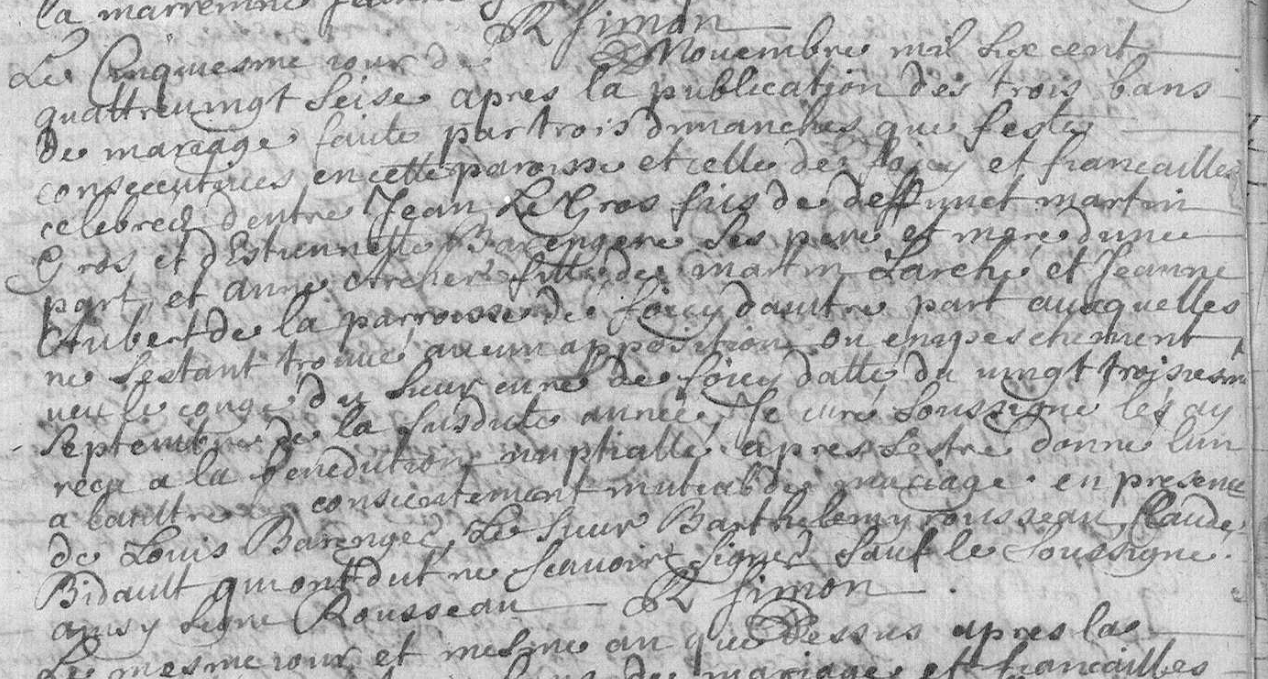 la marreinne Jeanne
R Simon
Le Cinquiesme iour de Novembre mil six cent
quattreuingt seise apres la publication des trois bans
de mariage faitte par trois dimanches que festes
consecutiues en cette paroisse et celle de foicy et fiancailles
celebreez dentre Jean Le Gros fils de deffunct martin
Gros et d'Estiennette Barengere ses pere et mere dune
part, et anne fille de martin Larche et Jeanne
Aubert de la parroisse de foicy dautre part ausquelles
ne sestant trouué aucun apposition ou empeschement
ueu le congé du sieur curé de foicy datté du uingt troisiesme
septembre de la susditte année, Je curé soussigné les ay
receu a la benediction nuptialle apres sestre donné lun
a lautre consientement mutuel de mariage en presence
de Louis Barenger, Le sieur Barthelemy rousseau, Claude
Bidault qui ont dit ne scauoir signer sauf le soussigne.
ainsy signe Rousseau R Simon
Le mesme iour et mesme an que Dessus apres la
de mariage et fiancailles